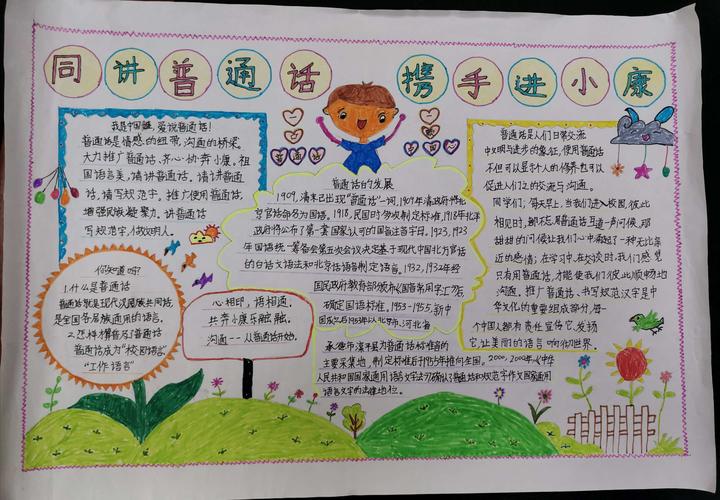 同讲普通话 携手进小康
我是中国娃,爱说普通话!
普通话是情感的纽带,沟通的桥梁。
大力推广普通话、齐心协奔小康,祖
国语言美,请讲普通话。请讲普通
话,请写规范字。推广使用普通话,
增强民族凝聚力,讲普通话
写规范字,做文明人。
你知道吗?
1.什么是普通话
普通话就是现代汉民族共同话
是全国各民族通用的语言。
2.怎样
普通话成为“校园语言”
“工作语言”
心相印,语相通,
共奔小康乐融融。
沟通——从普通话开始。
普通话
普通话的发展
1909,清末已出现“普通话”一词,1909年清政府将北
京官话命名为国语。1918,民国时期制定标准,1918年北洋
政府将公布了第一套国家认可的国音注音字母。1923,1923
年国语统一筹备会第五次会议决定基于现代中国北方官话
的白话文语法和北京话语音制定语言,1932,1932年经
国民政府教育部颁布《国音常用字汇》后
确定国语标准。1953-1955,新中
国成立后1953年以北京市、河北省
承德市滦平县为普通话标准音的
主要采集地,制定标准后于1955年推向全国。2000,2000年《中华
人民共和国国家通用语言文字法》确认普通话和规范字作文国家通用
语言文字的法律地位。
普通话是人们日常交流
中文明与进步的象征,使用普通话
不但可以显示个人的修养也可以
促进人们之间的交流与沟通。
同学们,每天早上,当我们进入校园,彼此
相见时,都不忘用普通话互道一声问候,那
甜甜的问候让我们心中涌起了一种无比亲
近的感情;在学习中,在交谈时,我们感觉
只有用普通话,才能使我们彼此顺畅地
沟通。推广普通话、书写规范汉字是中
华文化的重要组成部分,每一
个中国人都有责任宣传它,发扬
它,让美丽的语言响彻世界。